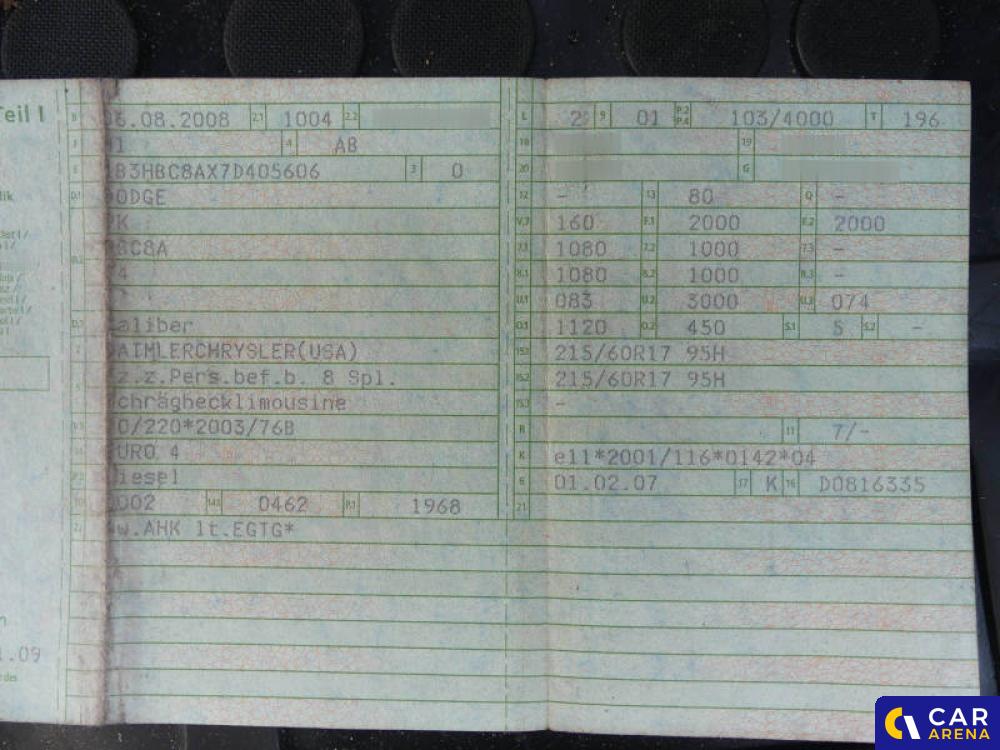 Teil I
B 06.08.2008 2.1 1004 2.2
J 01 4 AB
E 1B3HBC8AX7D405606 3 0
D.1 DODGE
PK
BC8A
D.3 Caliber
2 DAIMLERCHRYSLER(USA)
Fz.z.Pers.bef.b. 8 Spl.
Schräghecklimousine
70/220*2003/76B
EURO 4
P.3 Diesel
10 0002 14.1 0462 P.1 1968
22 *w.AHK lt.EGTG*
L 2 9 01 P.2 P.4 103/4000 T 196
18 19
20 G
12 - 13 80 Q -
V.7 160 F.1 2000 F.2 2000
7.1 1080 7.2 1000 7.3 -
8.1 1080 8.2 1000 8.3 -
U.1 083 U.2 3000 U.3 074
O.1 1120 O.2 450 S.1 5 S.2 -
15.1 215/60R17 95H
15.2 215/60R17 95H
15.3 -
R 11 7/-
K e11*2001/116*0142*04
6 01.02.07 17 K 16 DO816335
21
.09
CAR
ARENA